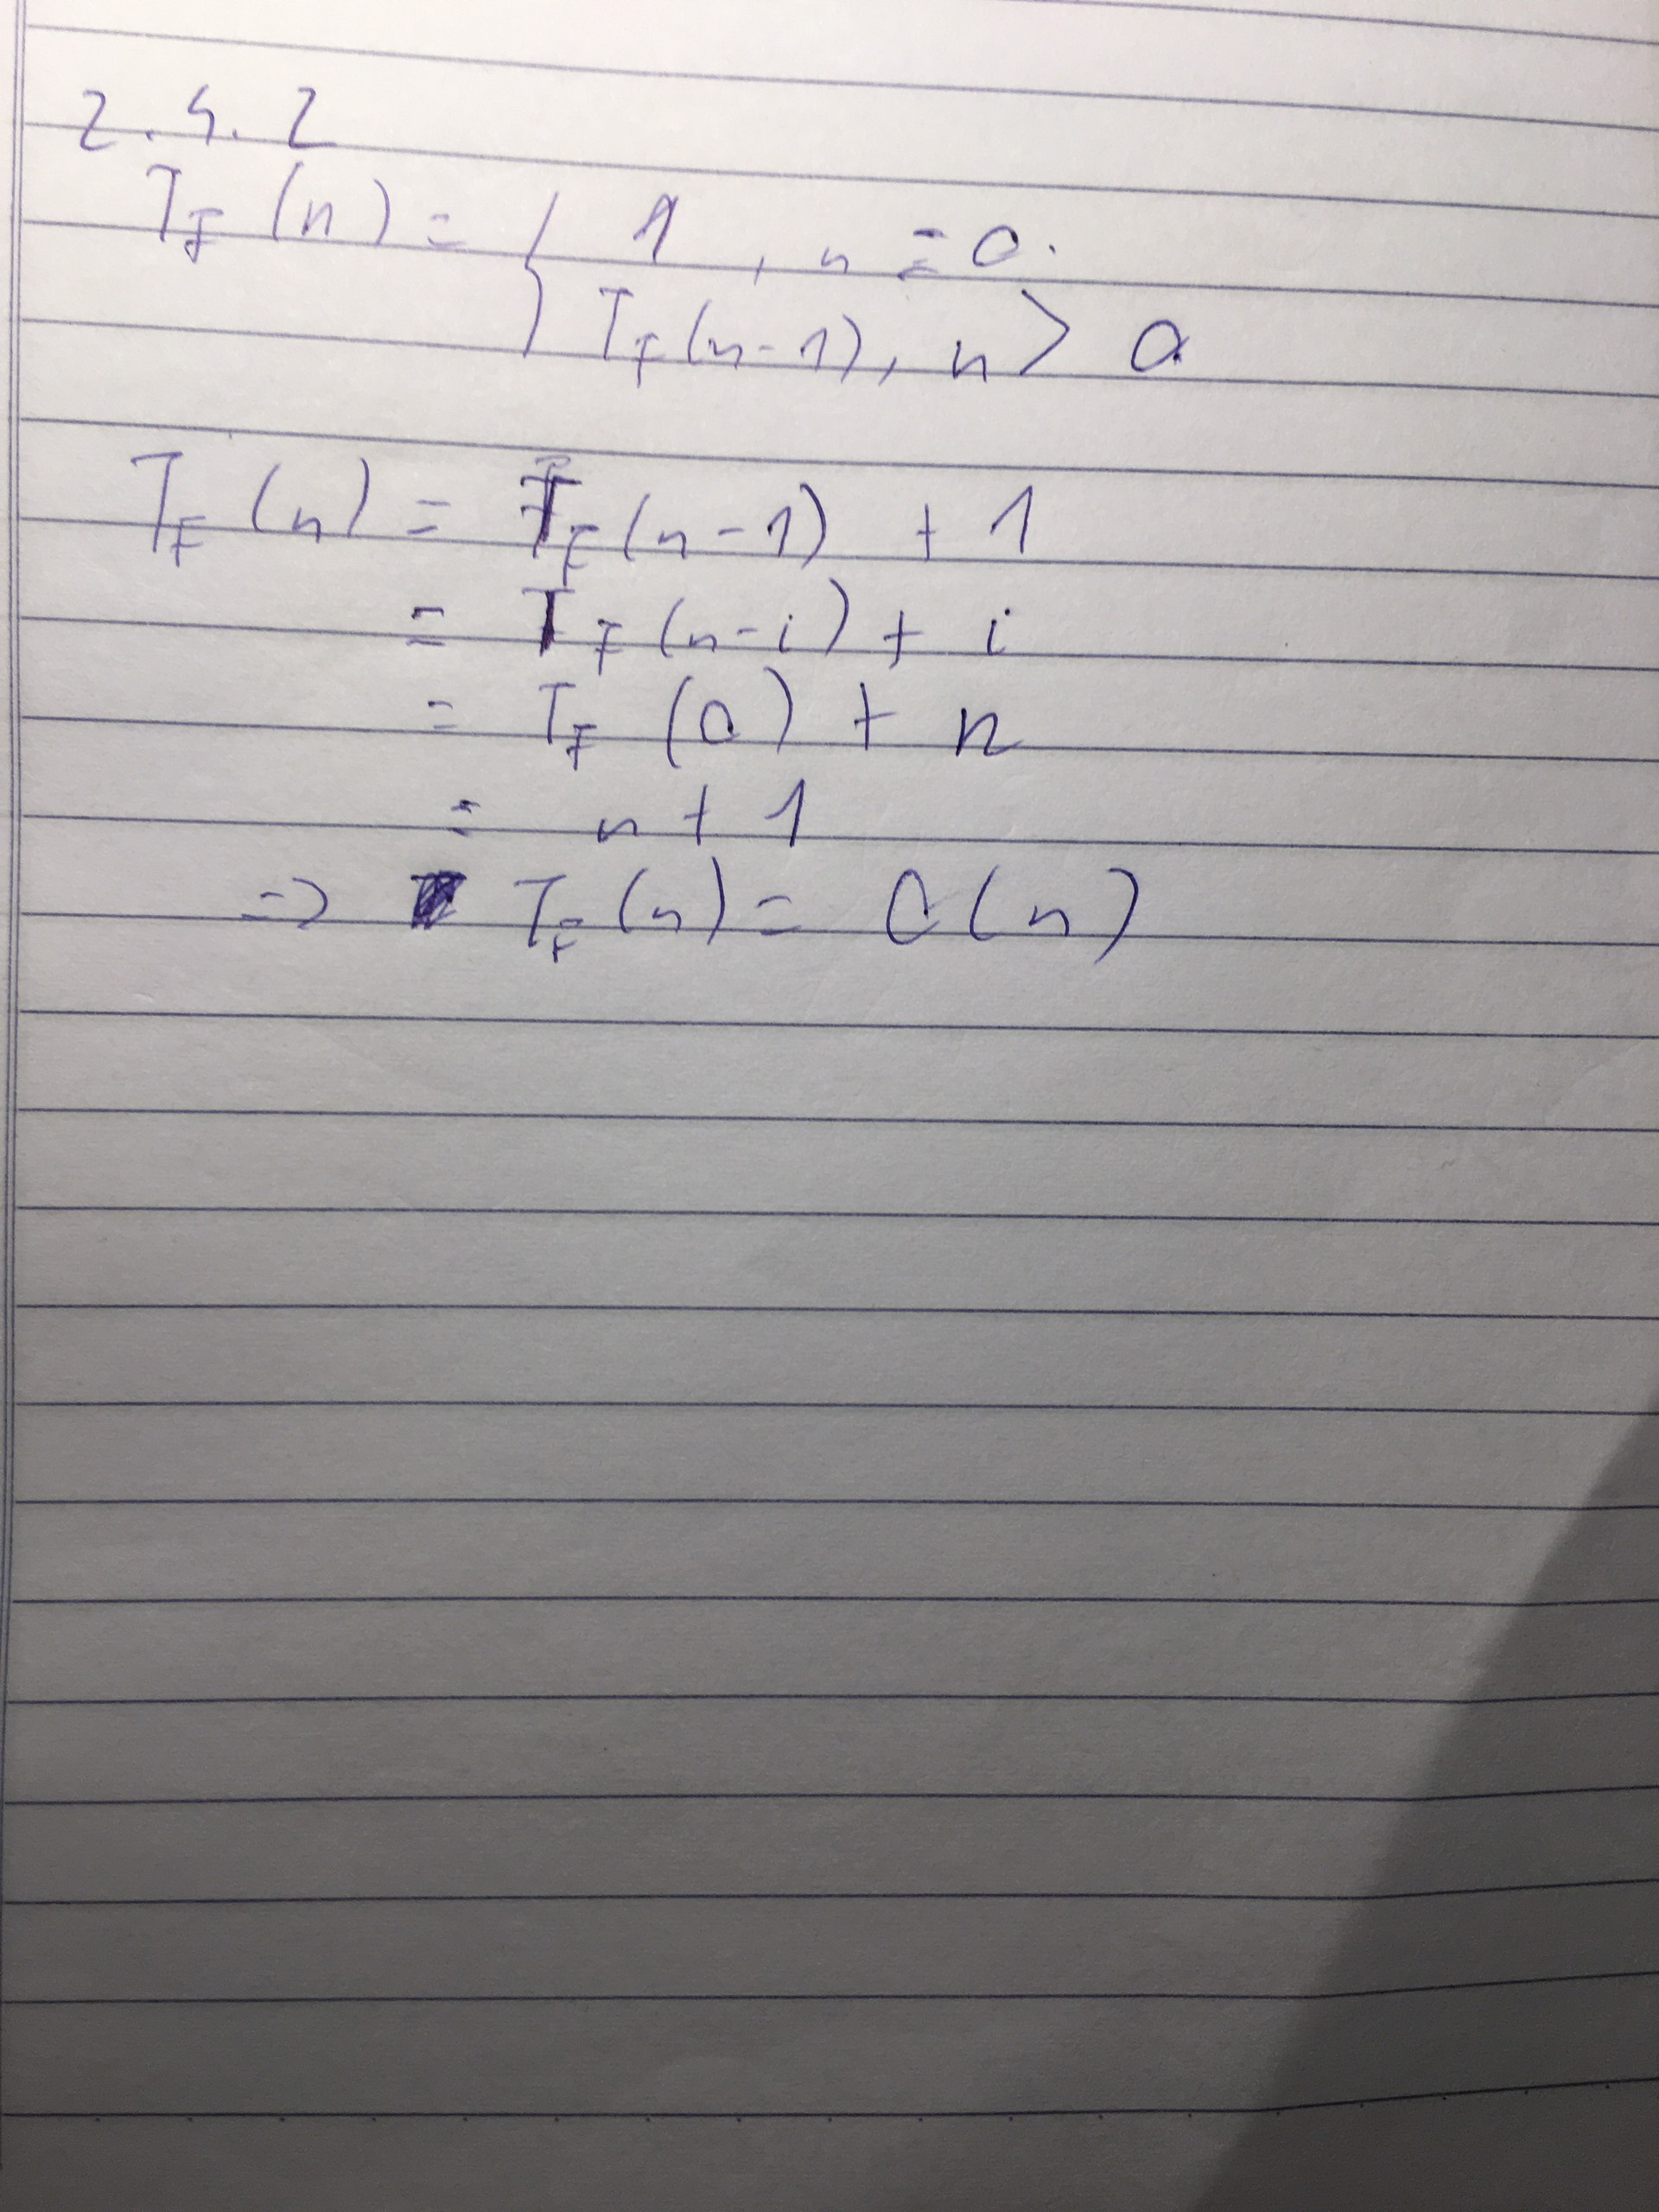 2.4.2
T_F (n) = { 1 , n = 0.
T_F (n-1), n > 0
T_F (n) = T_F (n-1) + 1
= T_F (n-i) + i
= T_F (0) + n
= n + 1
=> T_F (n) = O(n)